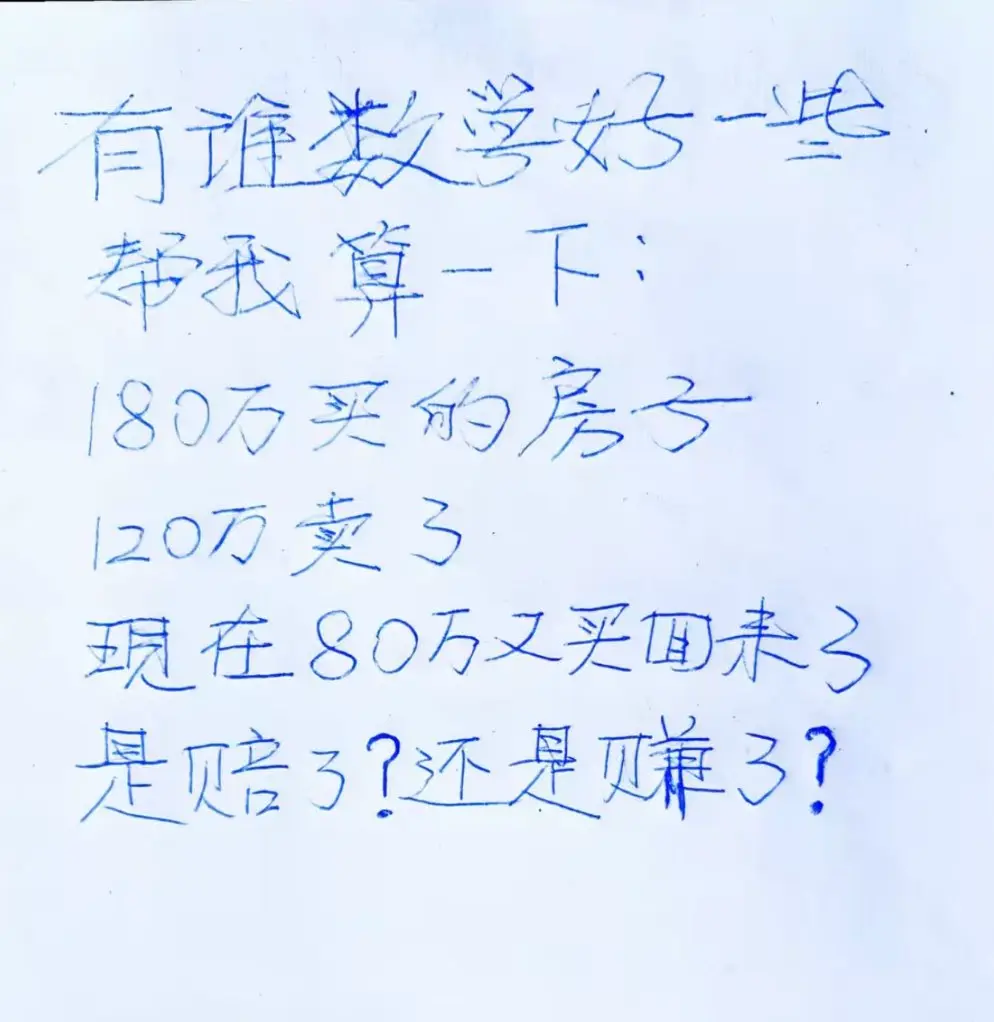 有谁数学好一些
帮我算一下:
180万买的房子
120万卖了
现在80万又买回来了
是赔了?还是赚了?